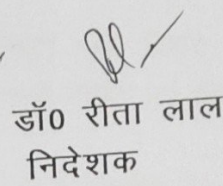 डॉ0 रीता लाल
निदेशक